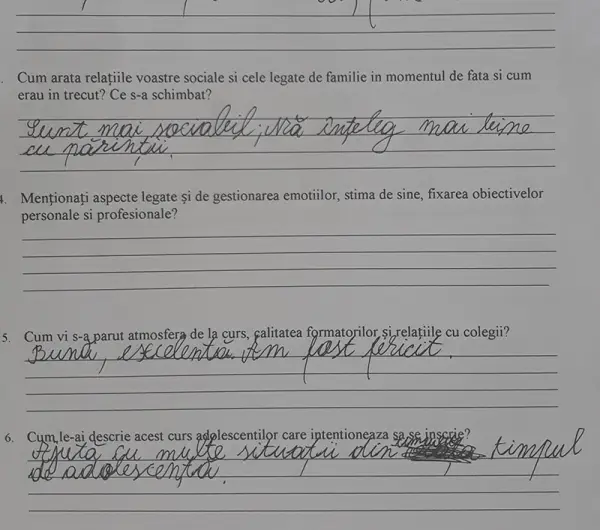 Cum arata relațiile voastre sociale si cele legate de familie in momentul de fata si cum
erau in trecut? Ce s-a schimbat?
Sunt mai sociabil; Mă înțeleg mai bine
cu părinții.
4. Menționați aspecte legate și de gestionarea emotiilor, stima de sine, fixarea obiectivelor
personale si profesionale?
5. Cum vi s-a parut atmosfera de la curs, calitatea formatorilor și relațiile cu colegii?
Bună, excelentă. Am fost fericit.
6. Cum le-ai descrie acest curs adolescentilor care intentioneaza sa se inscrie?
Ajută cu multe situații din timpul
de adolescență.